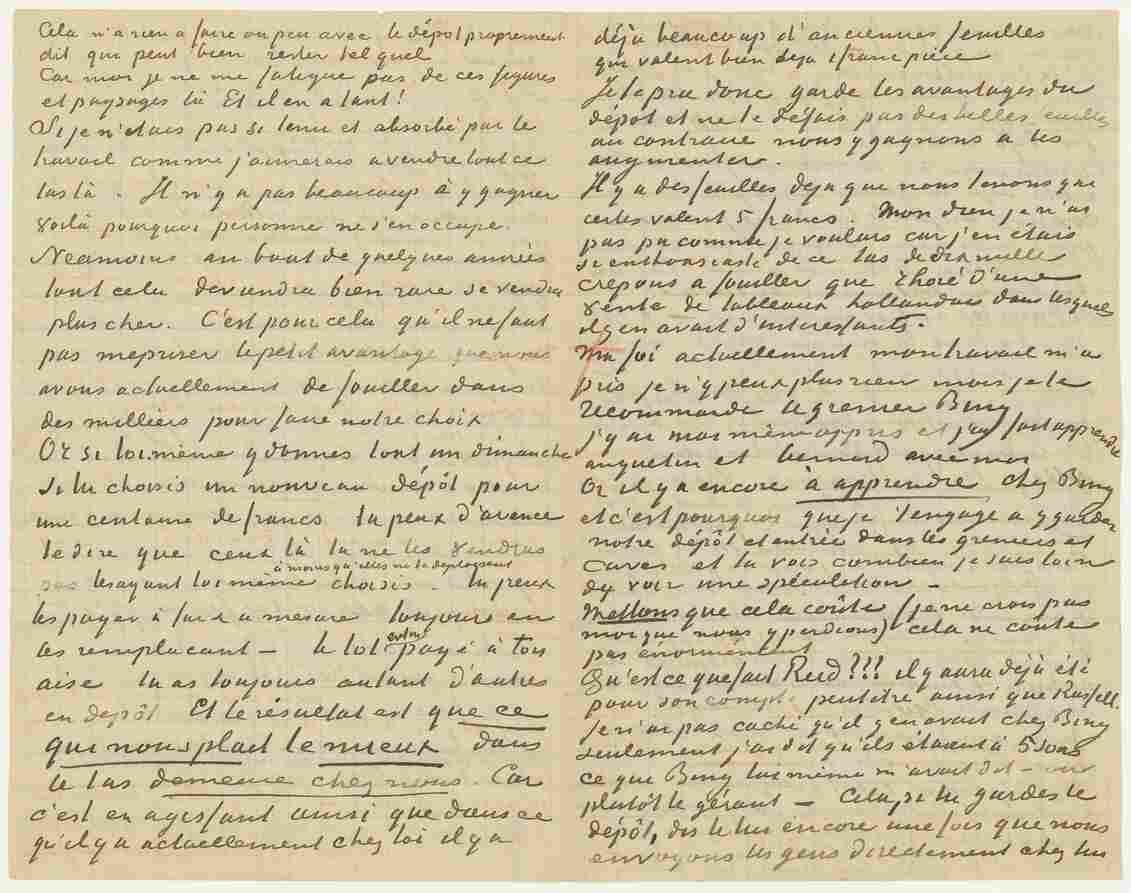 Cela n'a rien a faire ou peu avec le dépot proprement
dit qui peut bien rester tel quel
Car moi je ne me fatigue pas de ces figures
et paysages là Et il en a tant!
Si je n'etais pas si tenu et absorbé par le
travail comme j'aimerais a vendre tout ce
tas là. Il n'y a pas beaucoup à y gagner
voilà pourquoi personne ne s'en occupe.
Neamoins au bout de quelques années
tout cela deviendra bien rare se vendra
plus cher. C'est pour cela qu'il ne faut
pas mepriser le petit avantage que nous
avons actuellement de fouiller dans
des milliers pour faire notre choix
Or si toi même y donnes tout un dimanche
Si tu choisis un nouveau dépôt pour
une centaine de francs tu peux d'avance
te dire que ceux là tu ne les vendras
à moins qu'elles ne te deplaisent
pas les ayant toi même choisis. tu peux
les payer à fur & a mesure toujours en
les remplacant – le lot entre payé à ton
aise tu as toujours autant d'autres
en dépôt Et le résultat est que ce
qui nous plait le mieux dans
le tas demeure chez nous. Car
c'est en agissant ainsi que dans ce
qu'il y a actuellement chez toi il y a
déja beaucoup d'anciennes feuilles
qui valent bien deja 1 franc pièce
Je te prie donc garde les avantages du
dépôt et ne te défais pas des belles feuilles
au contraire nous y gagnons a les
augmenter.
Il y a des feuilles deja que nous tenons qui
certes valent 5 francs. Mon dieu je n'ai
pas pu comme je voulais car j'en étais
si enthousiaste de ce tas de dix mille
crepons a fouiller que Thoré d'une
vente de tableaux hollandais dans lesquels
il y en avait d'interessants.
Ma foi actuellement mon travail m'a
pris je n'y peux plus rien mais je te
recommande le grenier Bing
j'y ai moi même appris et j'ai fait apprendre
anquetin et bernard avec moi
Or il y a encore à apprendre chez Bing
et c'est pourquoi que je t'engage a y garder
notre dépôt et entrée dans les greniers et
caves et tu vois combien je suis loin
d'y voir une spéculation –
Mettons que cela coûte (je ne crois pas
moi que nous y perdions) cela ne coûte
pas enormément
Qu'est ce que fait Reid??? il y aura déjà été
pour son compte peutetre ainsi que Russell.
Je n'ai pas caché qu'il y en avait chez Bing
seulement j'ai dit qu'ils étaient à 5 sous
ce que Bing lui même m'avait dit – ou
plutôt le gérant – Cela si tu gardes le
dépôt, dis le lui encore une fois que nous
envoyons les gens directement chez lui